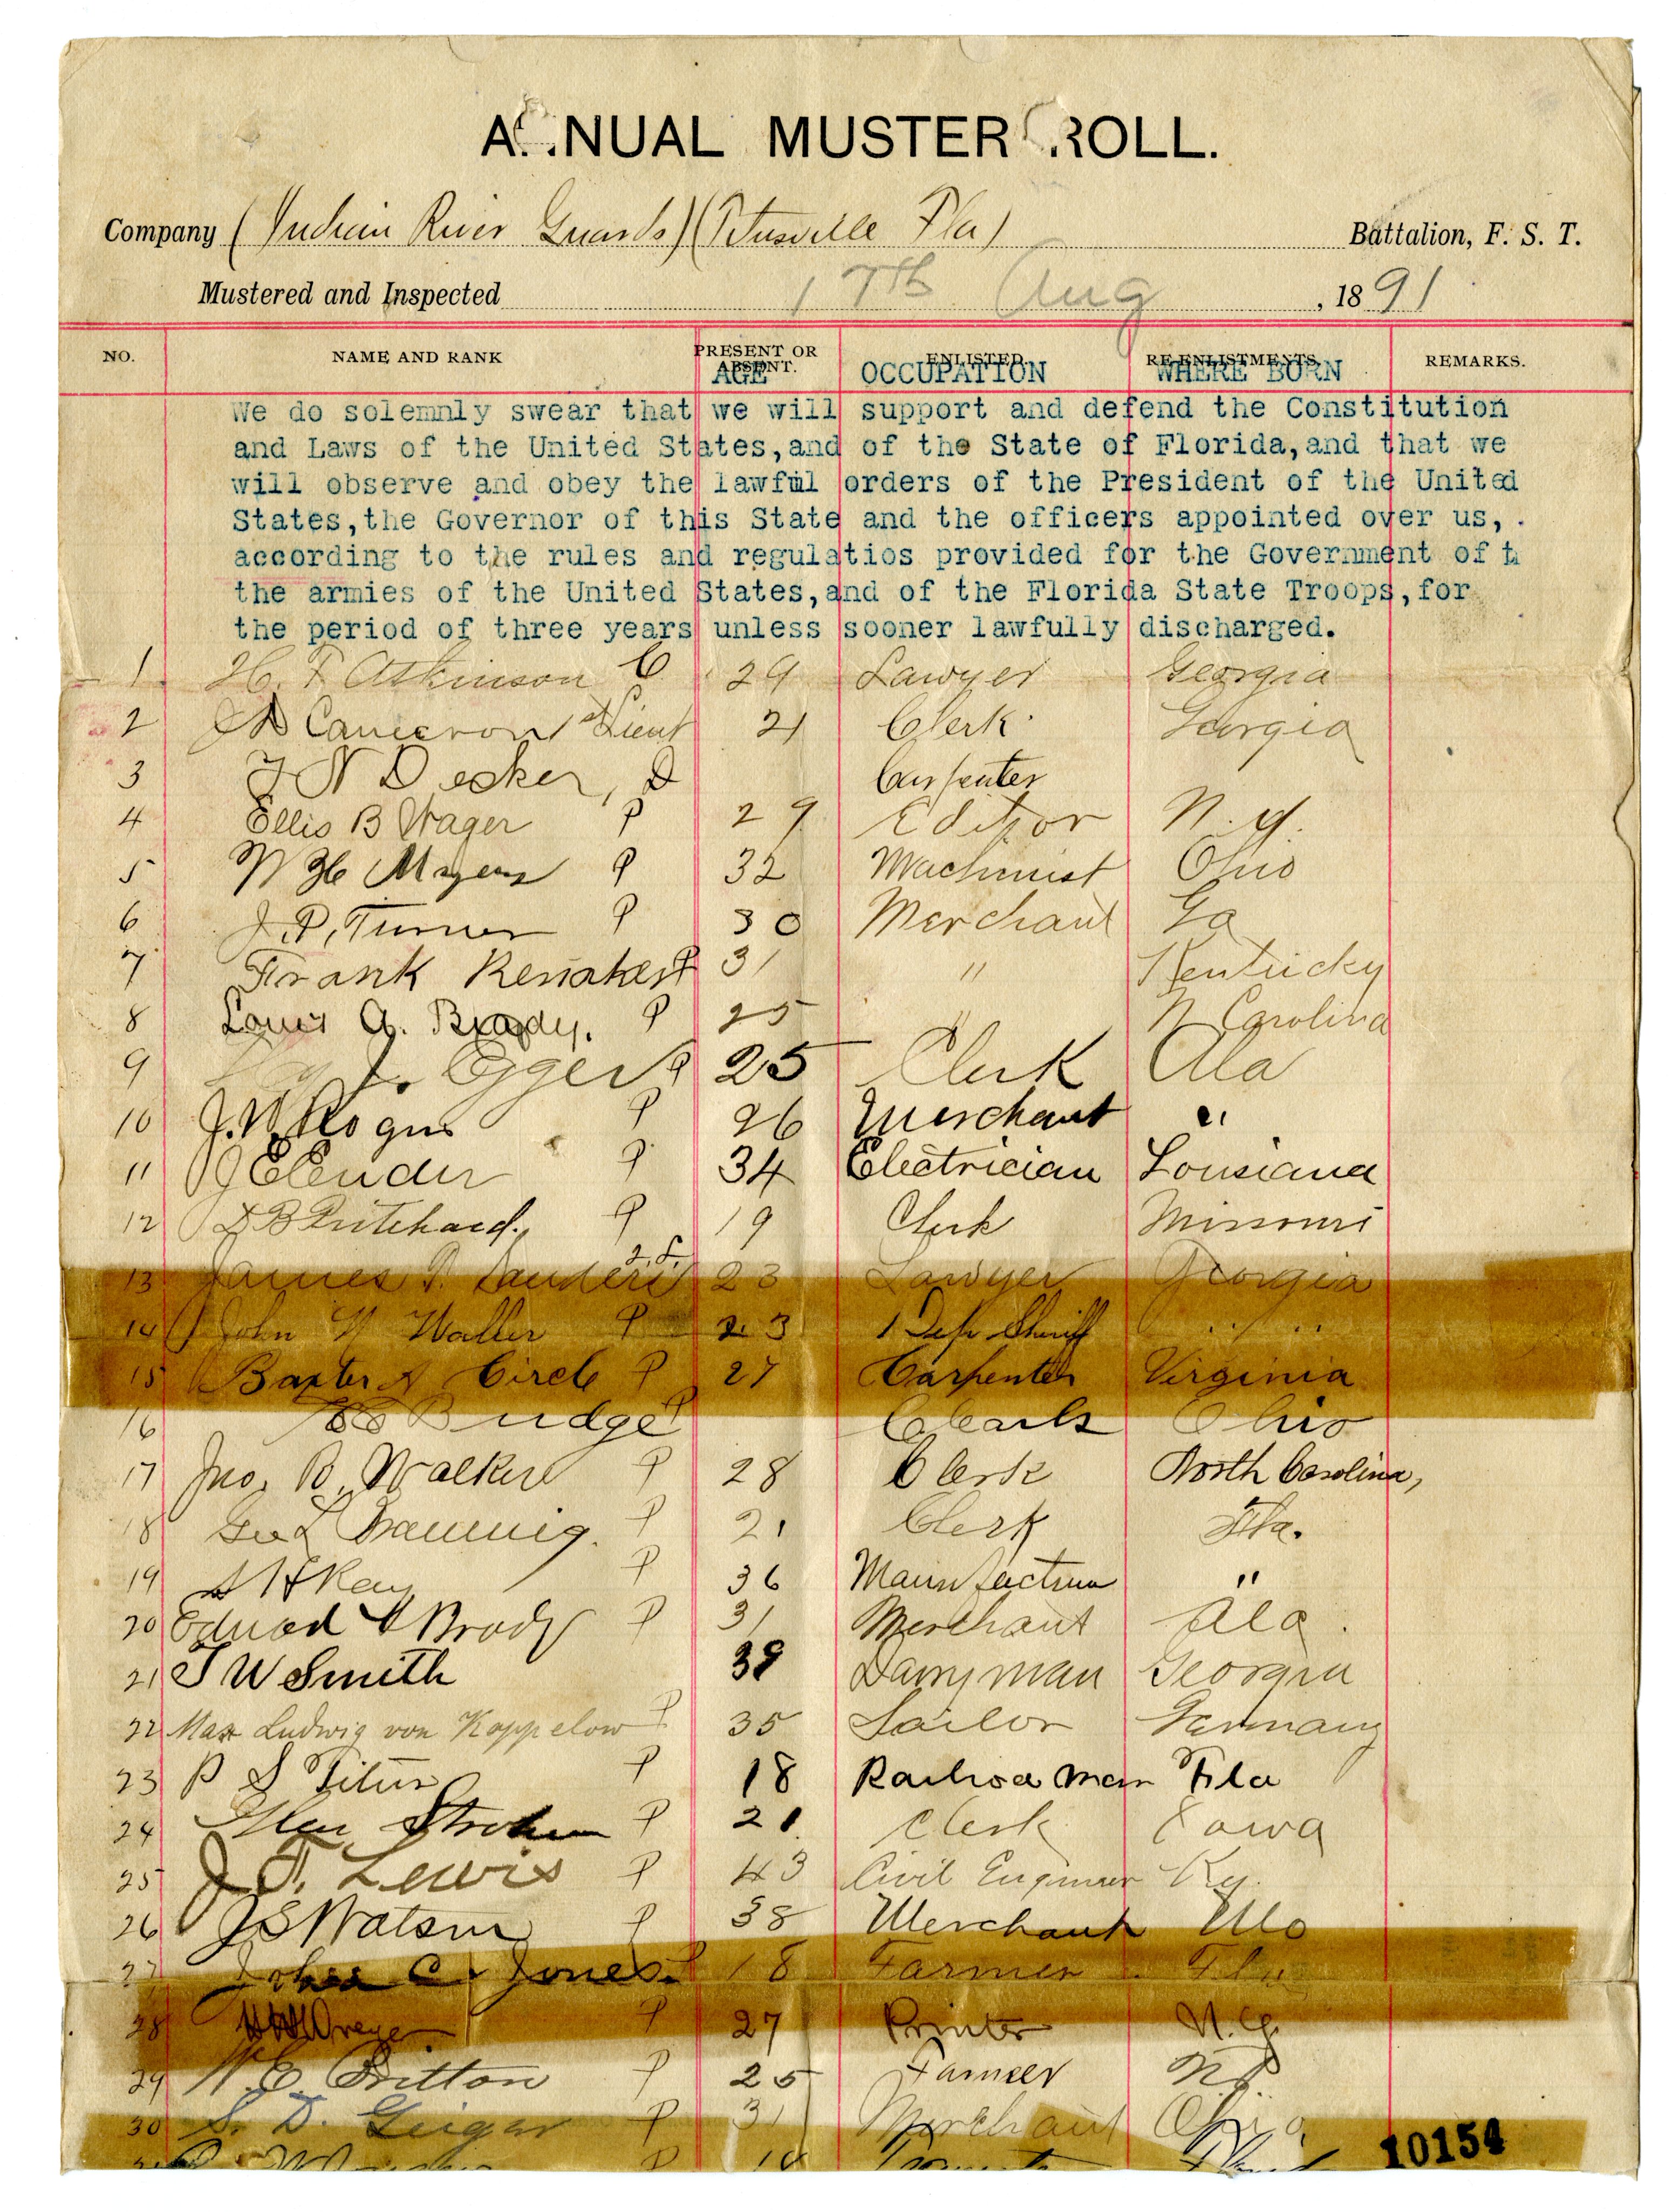 ANNUAL MUSTER ROLL.
Company (Indian River Guards) (Titusville Fla) Battalion, F. S. T.
Mustered and Inspected 17th Aug , 1891
NO. NAME AND RANK PRESENT OR ABSENT. ENLISTED. RE-ENLISTMENTS. REMARKS.
AGE OCCUPATION WHERE BORN
We do solemnly swear that we will support and defend the Constitution
and Laws of the United States,and of the State of Florida,and that we
will observe and obey the lawful orders of the President of the United
States,the Governor of this State and the officers appointed over us, .
according to the rules and regulatios provided for the Government of t
the armies of the United States,and of the Florida State Troops,for
the period of three years unless sooner lawfully discharged.
1 H. T Atkinson C 29 Lawyer Georgia
2 J D Cameron 1st Lieut 21 Clerk Georgia
3 J N Decker, Carpenter
4 Ellis B Wager P 29 Editor N. Y.
5 W H Myers P 32 Machinist Ohio
6 J. P. Turner P 30 Merchant Ga
7 Frank P 31 " Kentucky
8 Louis A. Brady. P 25 " N Carolina
9 Egger P 25 Clerk Ala
10 J. W. P 26 Merchant "
11 J E Elender P 34 Electrician Lousiana
12 D B Pritchard. P 19 Clerk Missouri
13 James T. Sanders 2. L. 23 Lawyer Georgia
14 John W Waller P 23 Dep Sheriff " "
15 Baxter Circle P 27 Carpenter Virginia
16 Budge P Clark Ohio
17 Jno. B. Walker P 28 Clerk North Carolina,
18 Geo L P 21 Clerk Fla.
19 P 36 "
20 Edward Brady P 31 Merchant Ala.
21 T W Smith 38 Dairyman Georgia
22 Max Ludwig von Koppelow P 35 Sailor Germany
23 P S Titus P 18 Railroa man Fla
24 P 21 Clerk Iowa
25 J. T. Lewis P 43 Civil Engineer Ky.
26 J S Watson P 38 Merchant Mo
27 John C. Jones. P 18 Farmer Fla
28 P 27 Printer N. Y.
29 Britton P 25 Farmer
30 S. D. Geiger P 31 Merchant Ohio
10154